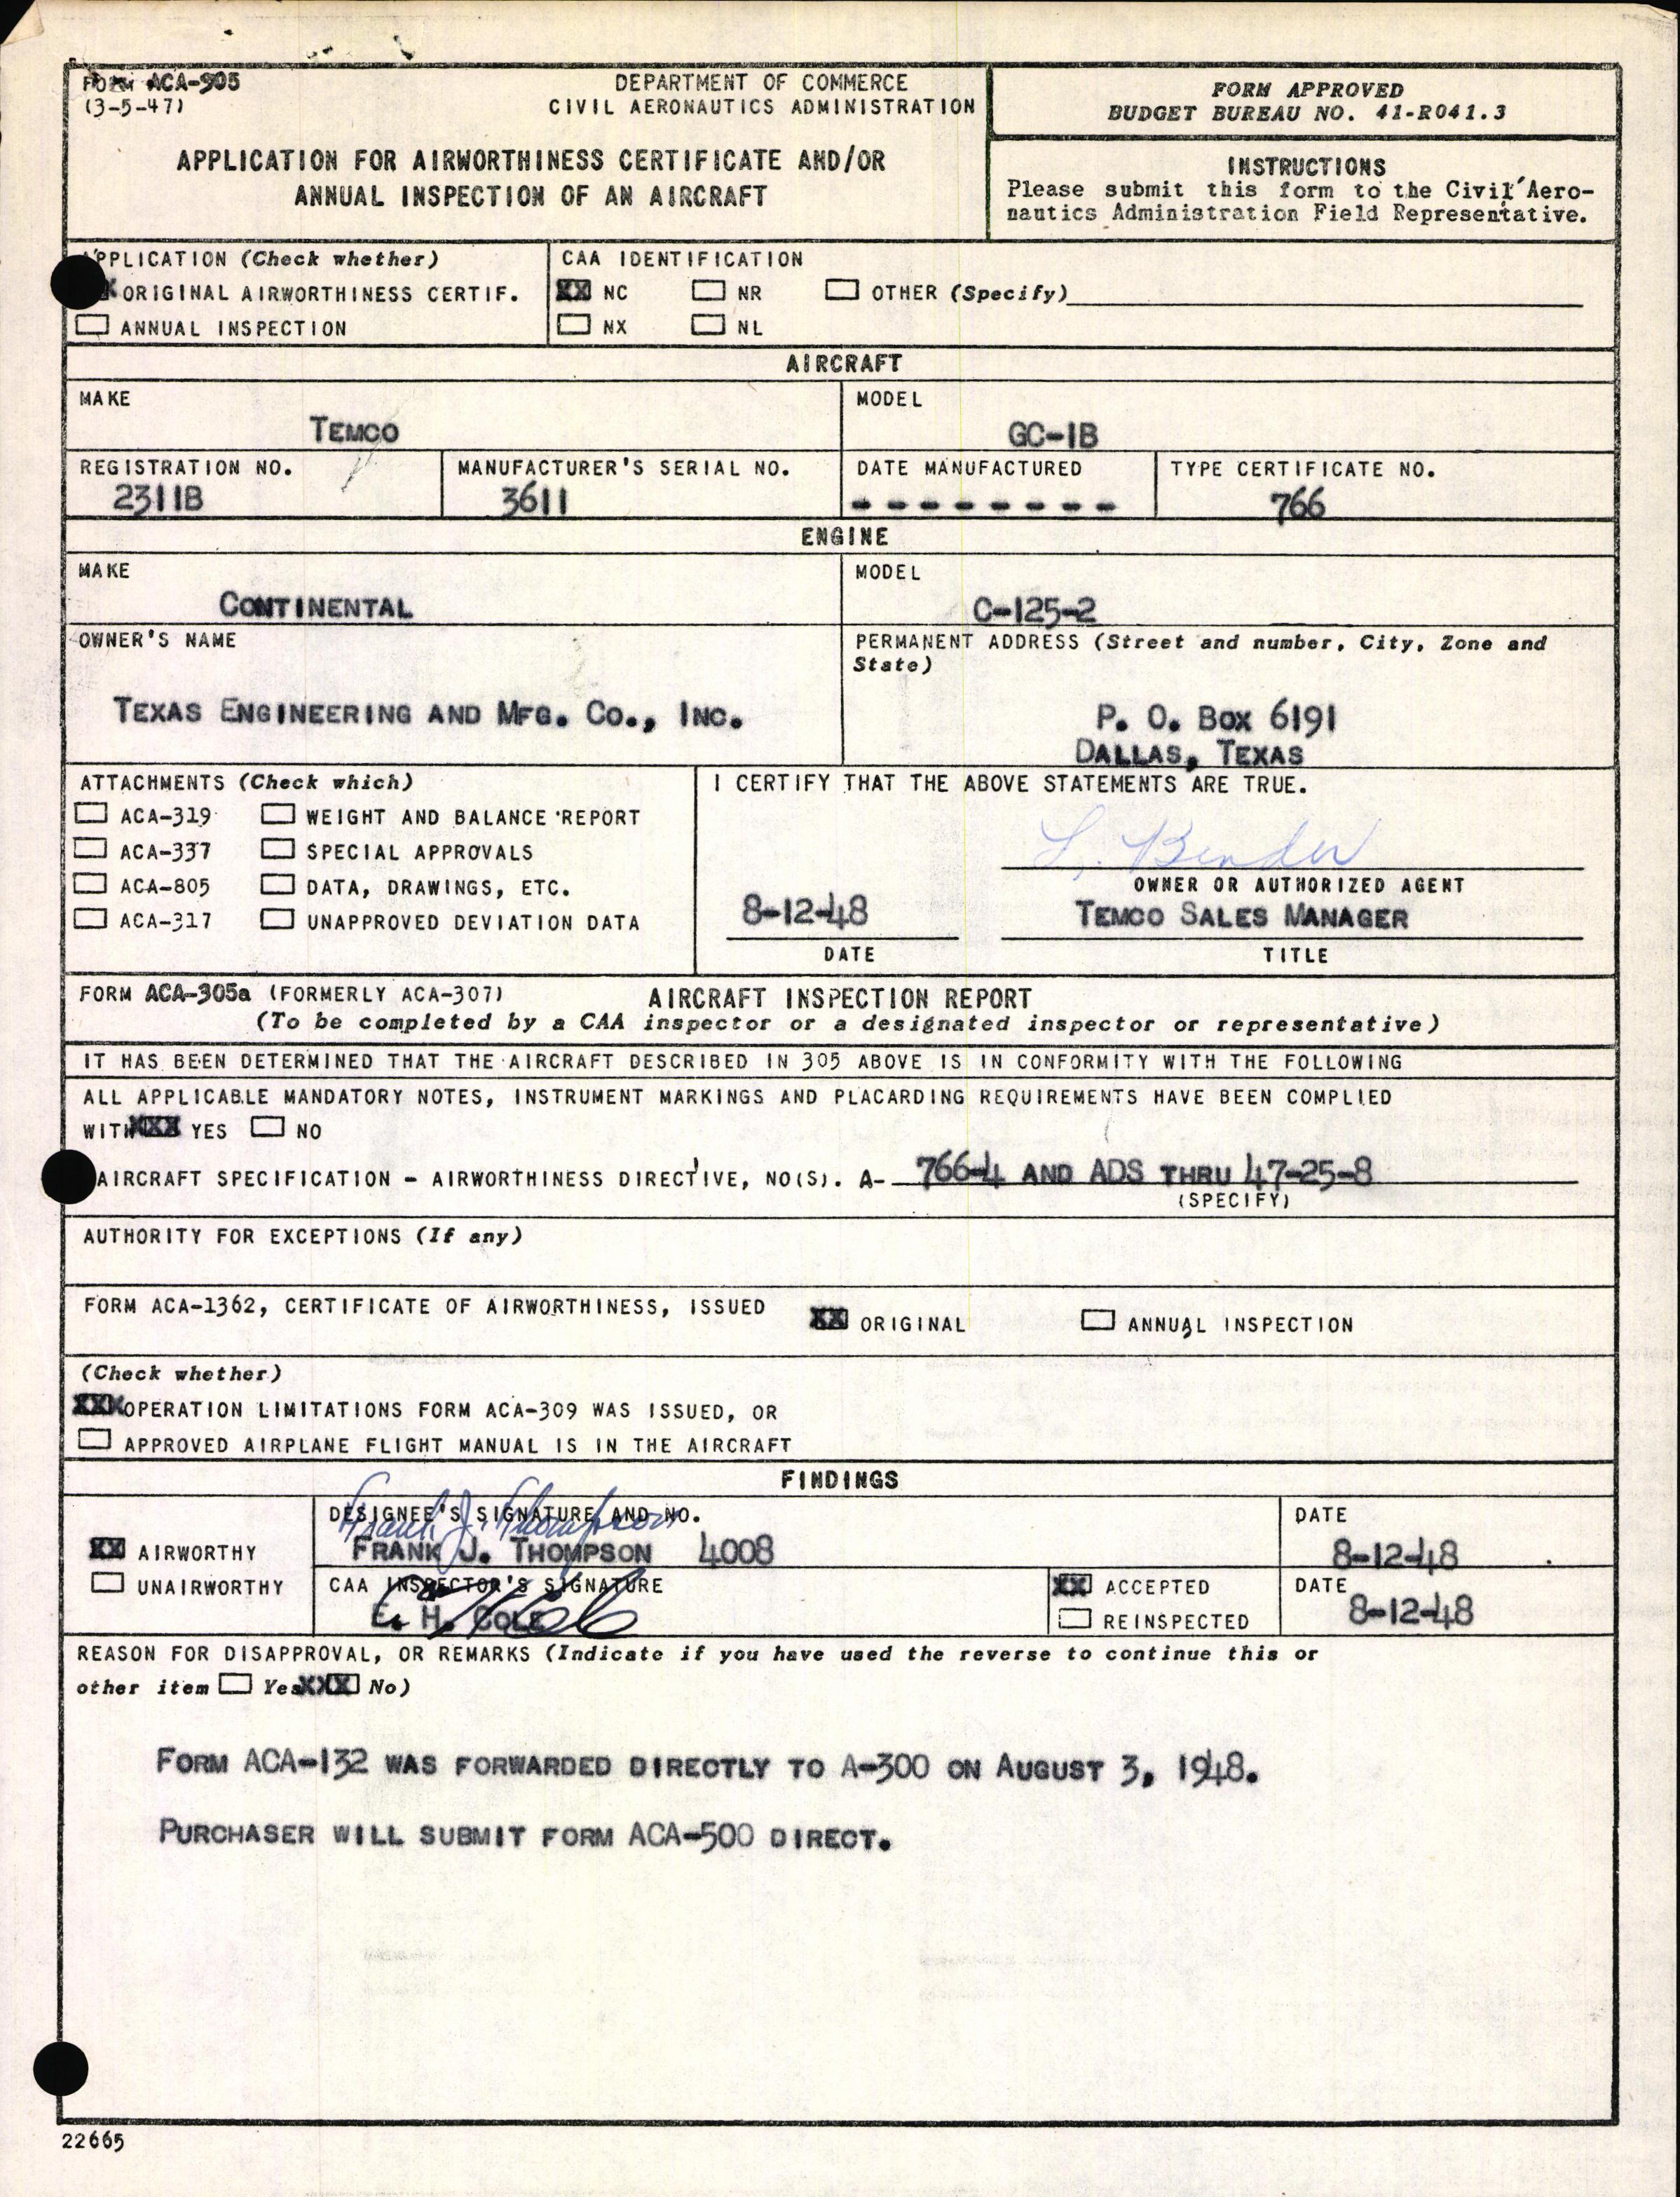 FORM ACA-305
(3-5-47)
DEPARTMENT OF COMMERCE
CIVIL AERONAUTICS ADMINISTRATION
APPLICATION FOR AIRWORTHINESS CERTIFICATE AND/OR
ANNUAL INSPECTION OF AN AIRCRAFT
FORM APPROVED
BUDGET BUREAU NO. 41-R041.3
INSTRUCTIONS
Please submit this form to the Civil Aero-
nautics Administration Field Representative.
APPLICATION (Check whether)
X ORIGINAL AIRWORTHINESS CERTIF.
ANNUAL INSPECTION
CAA IDENTIFICATION
XX NC NR OTHER (Specify)
NX NL
AIRCRAFT
MAKE
TEMCO
MODEL
GC-1B
REGISTRATION NO.
2311B
MANUFACTURER'S SERIAL NO.
3611
DATE MANUFACTURED
- - - - - - - -
TYPE CERTIFICATE NO.
766
ENGINE
MAKE
CONTINENTAL
MODEL
C-125-2
OWNER'S NAME
TEXAS ENGINEERING AND MFG. CO., INC.
PERMANENT ADDRESS (Street and number, City, Zone and
State)
P. O. BOX 6191
DALLAS, TEXAS
ATTACHMENTS (Check which)
ACA-319 WEIGHT AND BALANCE REPORT
ACA-337 SPECIAL APPROVALS
ACA-805 DATA, DRAWINGS, ETC.
ACA-317 UNAPPROVED DEVIATION DATA
I CERTIFY THAT THE ABOVE STATEMENTS ARE TRUE.
L. Bender
OWNER OR AUTHORIZED AGENT
8-12-48 TEMCO SALES MANAGER
DATE TITLE
FORM ACA-305a (FORMERLY ACA-307) AIRCRAFT INSPECTION REPORT
(To be completed by a CAA inspector or a designated inspector or representative)
IT HAS BEEN DETERMINED THAT THE AIRCRAFT DESCRIBED IN 305 ABOVE IS IN CONFORMITY WITH THE FOLLOWING
ALL APPLICABLE MANDATORY NOTES, INSTRUMENT MARKINGS AND PLACARDING REQUIREMENTS HAVE BEEN COMPLIED
WITH XXX YES NO
AIRCRAFT SPECIFICATION - AIRWORTHINESS DIRECTIVE, NO(S). A- 766-4 AND ADS THRU 47-25-8
(SPECIFY)
AUTHORITY FOR EXCEPTIONS (If any)
FORM ACA-1362, CERTIFICATE OF AIRWORTHINESS, ISSUED XX ORIGINAL ANNUAL INSPECTION
(Check whether)
XXX OPERATION LIMITATIONS FORM ACA-309 WAS ISSUED, OR
APPROVED AIRPLANE FLIGHT MANUAL IS IN THE AIRCRAFT
FINDINGS
XX AIRWORTHY
UNAIRWORTHY
DESIGNEE'S SIGNATURE AND NO.
Frank J. Thompson
FRANK J. THOMPSON 4008
DATE
8-12-48
CAA INSPECTOR'S SIGNATURE
E. H. COLE
XX ACCEPTED
REINSPECTED
DATE
8-12-48
REASON FOR DISAPPROVAL, OR REMARKS (Indicate if you have used the reverse to continue this or
other item Yes XXX No)
FORM ACA-132 WAS FORWARDED DIRECTLY TO A-300 ON AUGUST 3, 1948.
PURCHASER WILL SUBMIT FORM ACA-500 DIRECT.
22665